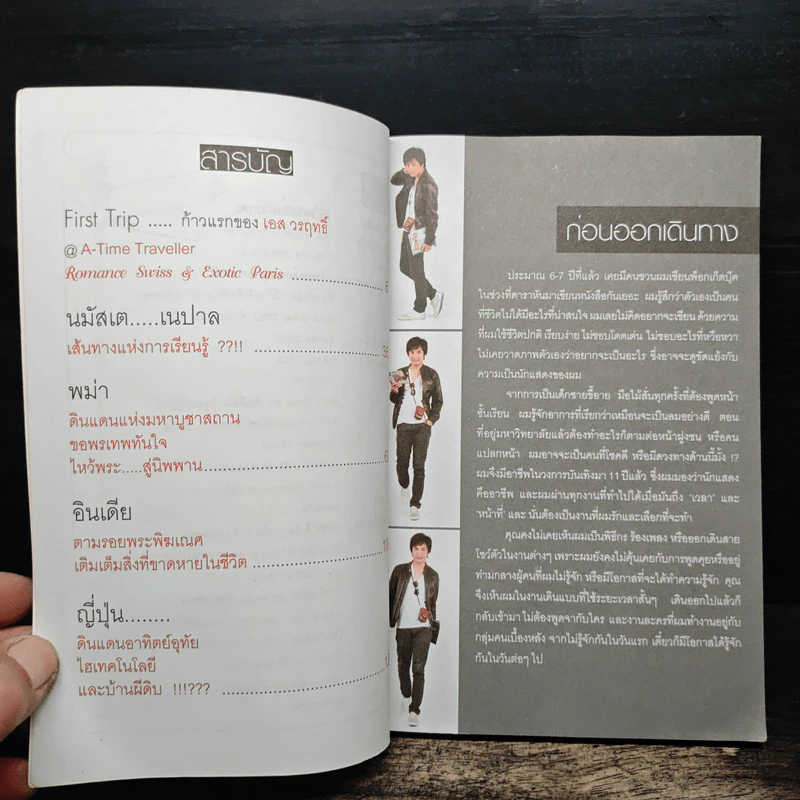 สารบัญ
First Trip ..... ก้าวแรกของ เอส วรฤทธิ์
@ A-Time Traveller
Romance Swiss & Exotic Paris ........................ 6
นมัสเต.....เนปาล
เส้นทางแห่งการเรียนรู้ ??!! ................................ 36
พม่า
ดินแดนแห่งมหาบูชาสถาน
ขอพรเทพทันใจ
ไหว้พระ.....สู่นิพพาน............................................
อินเดีย
ตามรอยพระพิฆเณศ
เติมเต็มสิ่งที่ขาดหายในชีวิต ................................
ญี่ปุ่น........
ดินแดนอาทิตย์อุทัย
ไฮเทคโนโลยี
และบ้านผีดิบ !!!??? ........................................
ก่อนออกเดินทาง
ประมาณ 6-7 ปีที่แล้ว เคยมีคนชวนผมเขียนพ็อกเก็ตบุ๊ค
ในช่วงที่ดาราหันมาเขียนหนังสือกันเยอะ ผมรู้สึกว่าตัวเองเป็นคน
ที่ชีวิตไม่ได้มีอะไรที่น่าสนใจ ผมเลยไม่คิดอยากจะเขียน ด้วยความ
ที่ผมใช้ชีวิตปกติ เรียบง่าย ไม่ชอบโดดเด่น ไม่ชอบอะไรที่หรือหวา
ไม่เคยวาดภาพตัวเองว่าอยากจะเป็นอะไร ซึ่งอาจจะดูขัดแย้งกับ
ความเป็นนักแสดงของผม
จากการเป็นเด็กชายขี้อาย มือไม้สั่นทุกครั้งที่ต้องพูดหน้า
ชั้นเรียน ผมรู้จักอาการที่เรียกว่าเหมือนจะเป็นลมอย่างดี ตอน
ที่อยู่มหาวิทยาลัยแล้วต้องทำอะไรก็ตามต่อหน้าฝูงชน หรือคน
แปลกหน้า ผมอาจจะเป็นคนที่โชคดี หรือมีดวงทางด้านนี้มั้ง !?
ผมจึงมีอาชีพในวงการบันเทิงมา 11 ปีแล้ว ซึ่งผมมองว่านักแสดง
คืออาชีพ และผมผ่านทุกงานที่ทำไปได้เมื่อมันถึง 'เวลา' และ
'หน้าที่' และ นั่นต้องเป็นงานที่ผมรักและเลือกที่จะทำ
คุณคงไม่เคยเห็นผมเป็นพิธีกร ร้องเพลง หรือออกเดินสาย
โชว์ตัวในงานต่างๆ เพราะผมยังคงไม่คุ้นเคยกับการพูดคุยหรืออยู่
ท่ามกลางผู้คนที่ผมไม่รู้จัก หรือมีโอกาสที่จะได้ทำความรู้จัก คุณ
จึงเห็นผมในงานเดินแบบที่ใช้ระยะเวลาสั้นๆ เดินออกไปแล้วก็
กลับเข้ามา ไม่ต้องพูดจากับใคร และงานละครที่ผมทำงานอยู่กับ
กลุ่มคนเบื้องหลัง จากไม่รู้จักกันในวันแรก เดี๋ยวก็มีโอกาสได้รู้จัก
กันในวันต่อๆ ไป